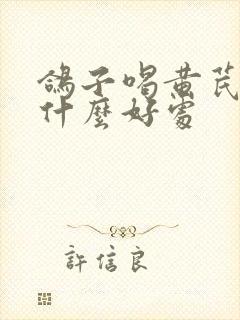 鴿子喝黃芪
什麼好處
許信良